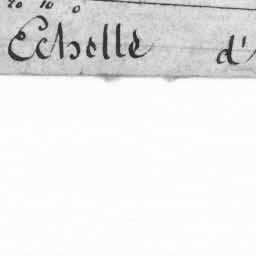 20 10 0
Echelle d'